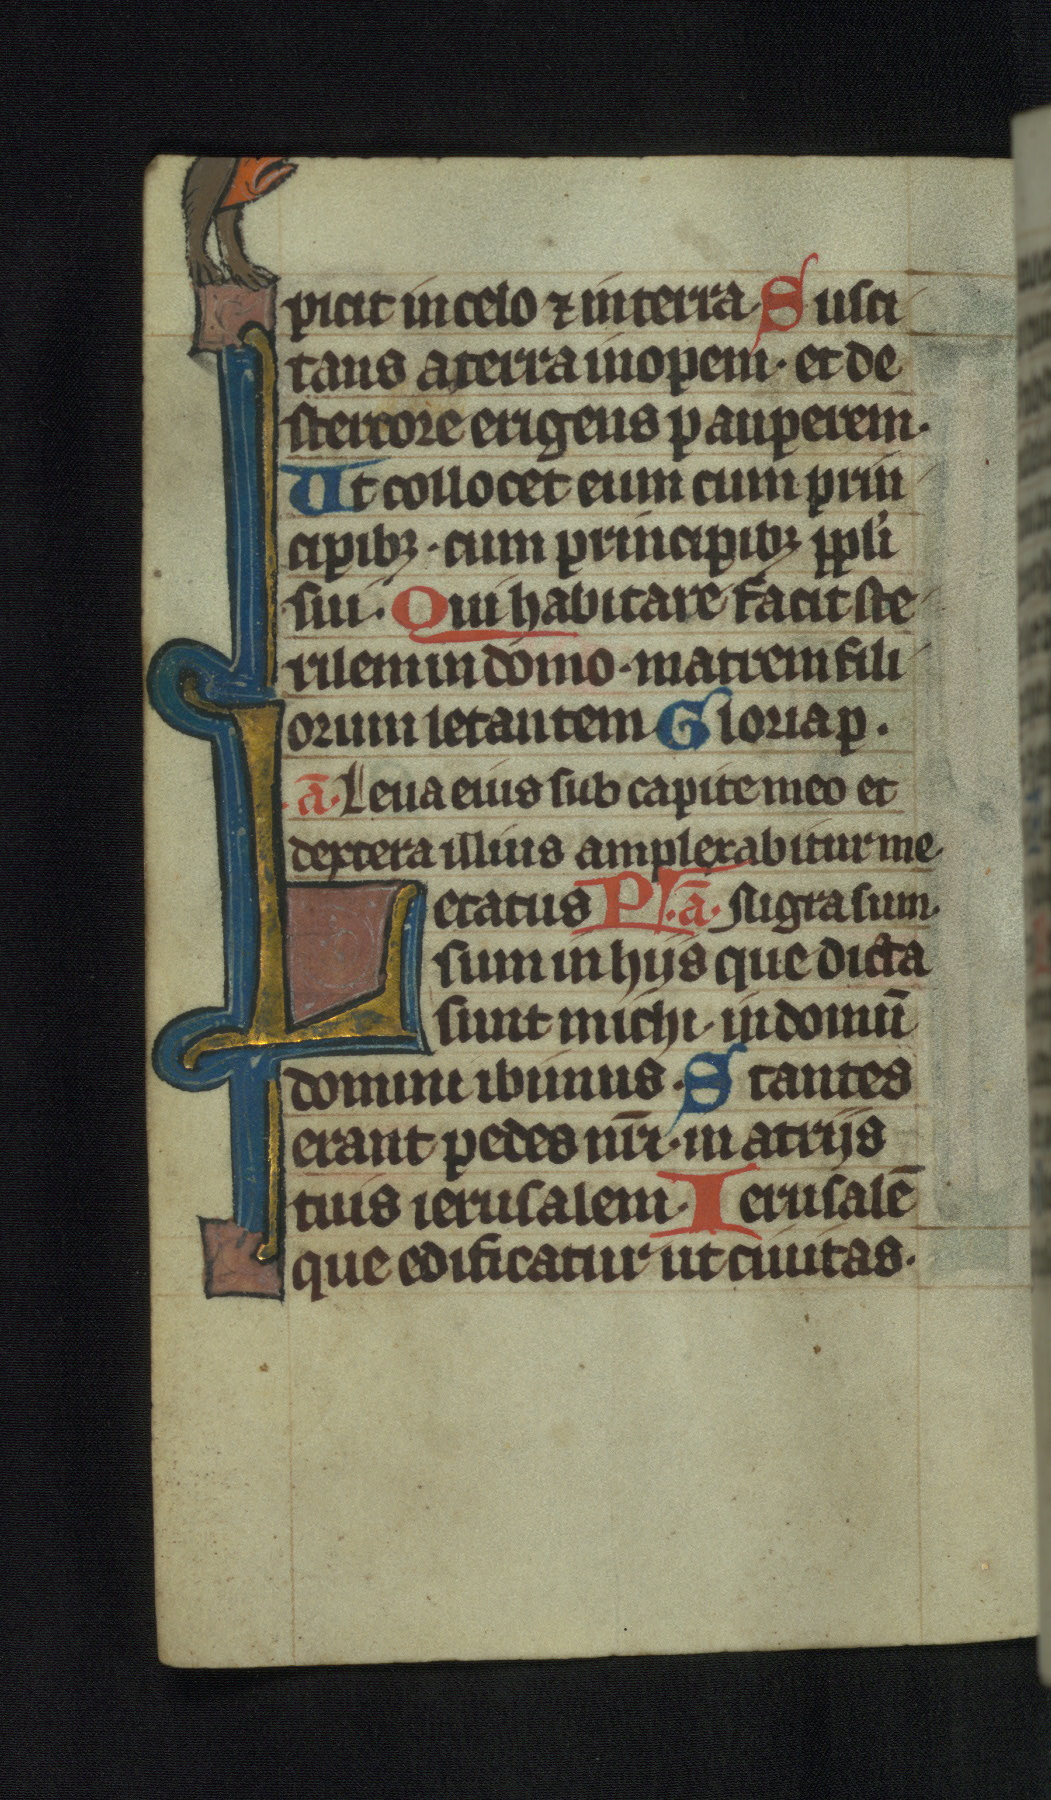 picit in celo ⁊ in terra Susci
tans a terra inopem· et de
stercore erigens pauperem·
Ut collocet eum cum prin
cipibꝫ · cum principibꝫ ppl'i
sui · Qui habitare facit ste
rilem in domo · matrem fili
orum letantem Gloria p ·
·ā· Leua eius sub capite meo et
dextera illius amplexabitur me·
Letatus Ps· ā· Nigra sum·
sum in hijs que dicta
sunt michi · in domū
domini ibimus · Stantes
erant pedes nr̄i · in atrijs
tuis ierusalem· Ierusalē
que edificatur ut ciuitas·